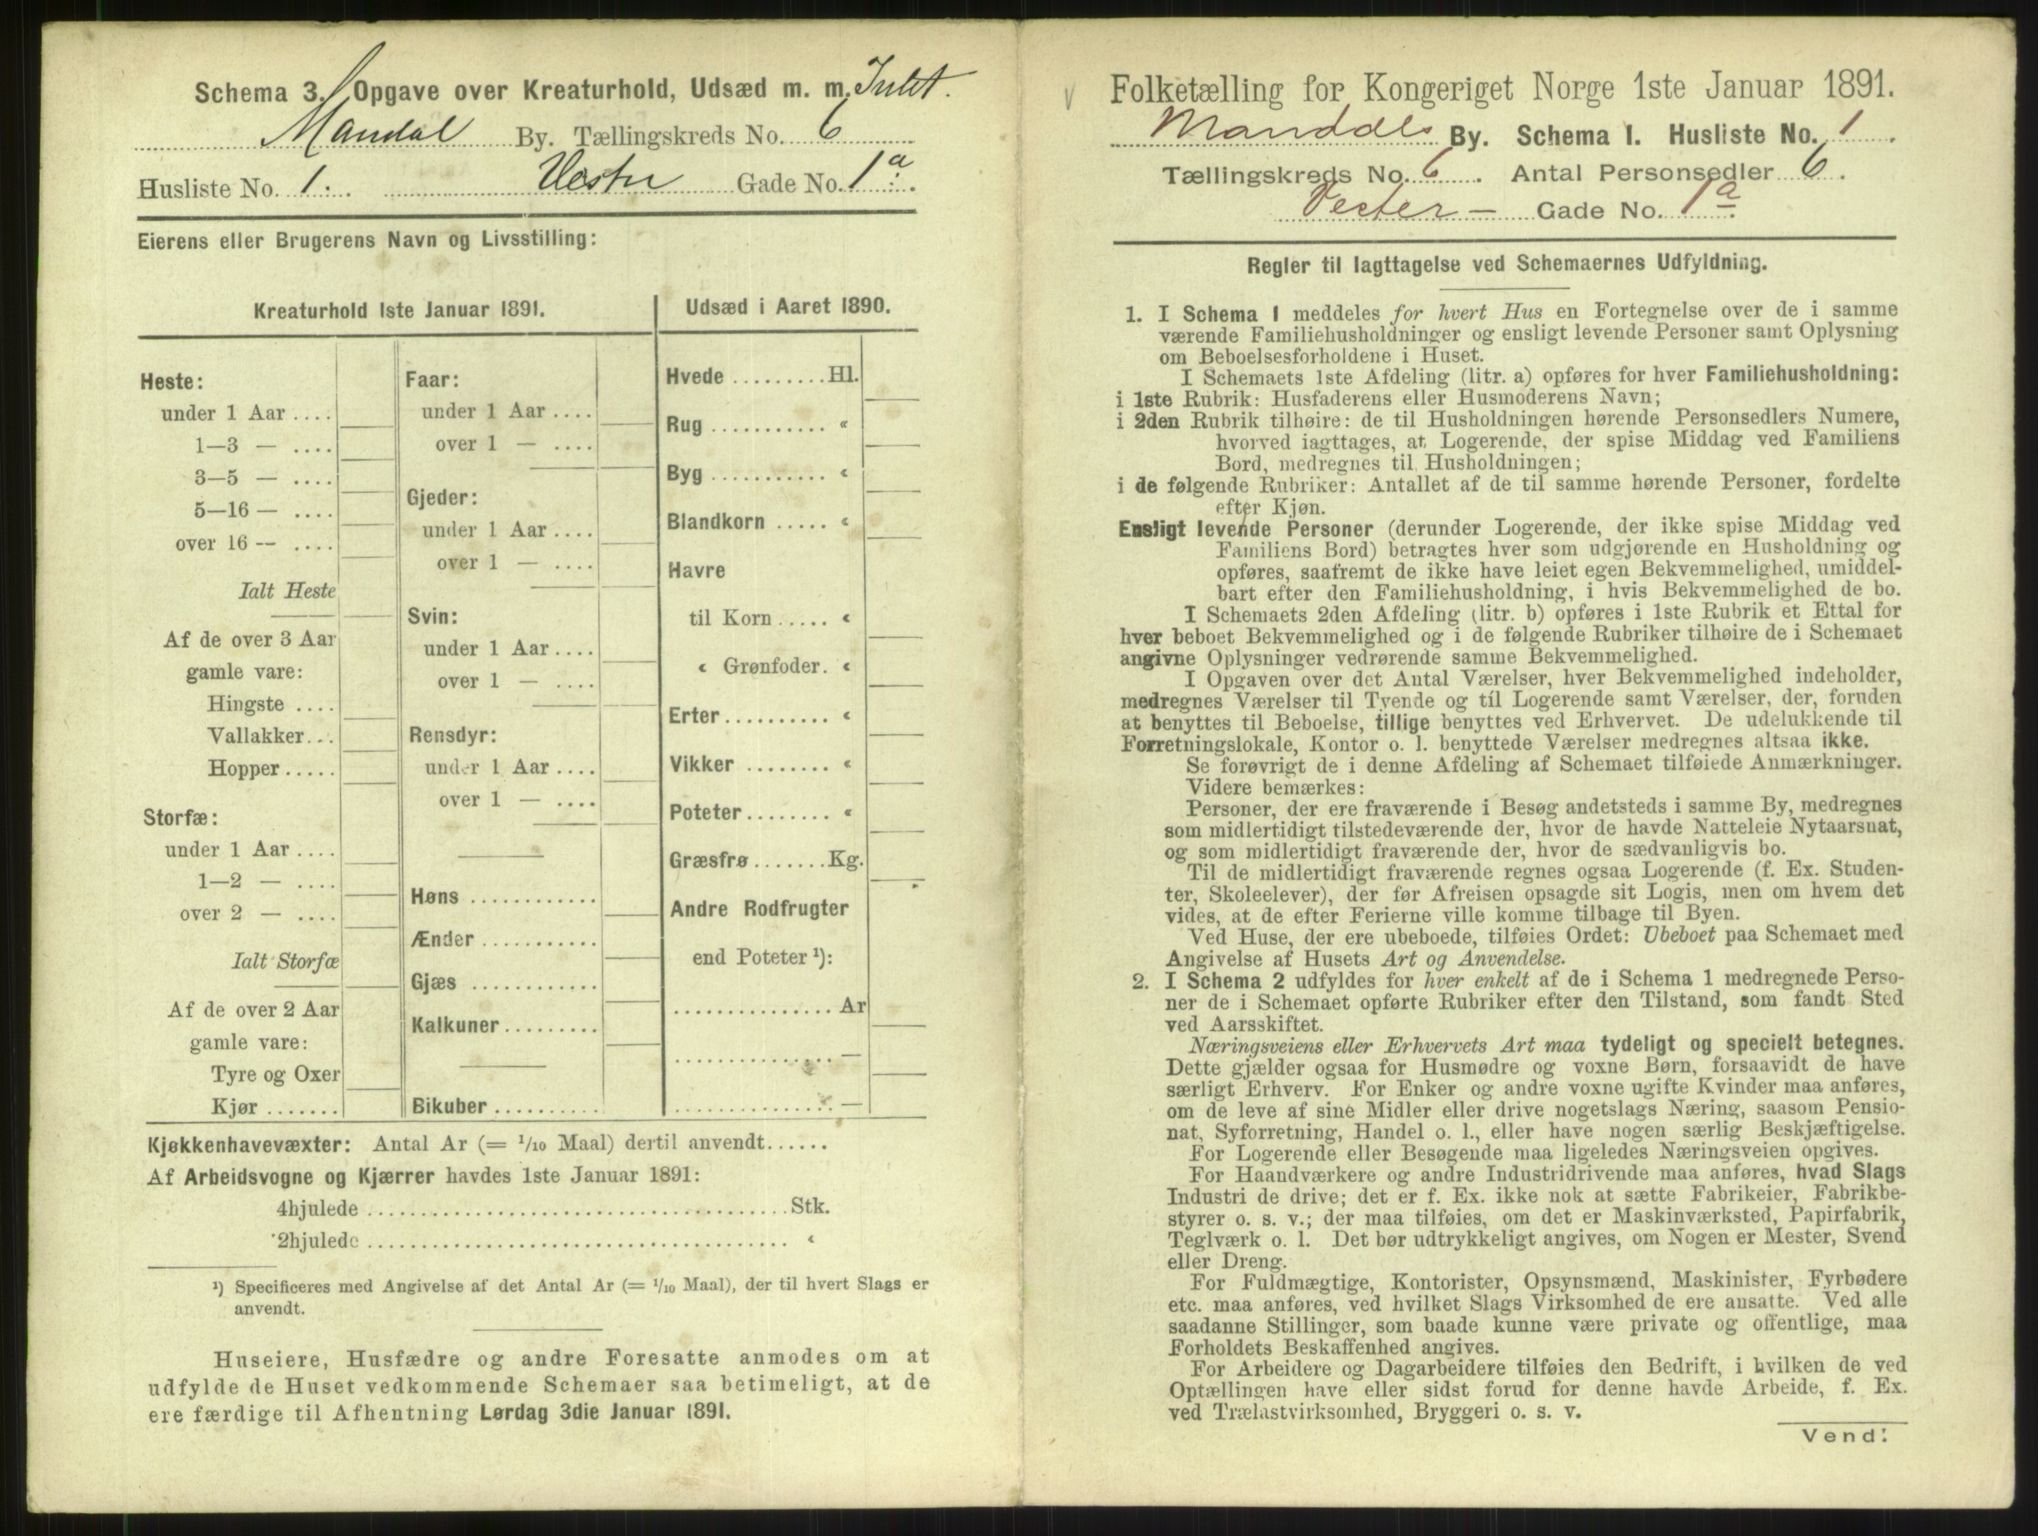 Schema 3. Opgave over Kreaturhold, Udsæd m. m. Intet.
Mandal By. Tællingskreds No. 6
Husliste No. 1. Vester Gade No. 1a.
Eierens eller Brugerens Navn og Livsstilling:
Kreaturhold 1ste Januar 1891.
Heste:
under 1 Aar ....
1—3 — ....
3—5 — ....
5—16 — ....
over 16 — ....
Ialt Heste
Af de over 3 Aar
gamle vare:
Hingste ....
Vallakker...
Hopper.....
Storfæ:
under 1 Aar ....
1—2 — ....
over 2 — ....
Ialt Storfæ
Af de over 2 Aar
gamle vare:
Tyre og Oxer
Kjør .......
Faar:
under 1 Aar ....
over 1 — ....
Gjeder:
under 1 Aar ....
over 1 — ....
Svin:
under 1 Aar ....
over 1 — ....
Rensdyr:
under 1 Aar ....
over 1 — ....
Høns ............
Ænder ...........
Gjæs ............
Kalkuner.........
Bikuber ..........
Udsæd i Aaret 1890.
Hvede .........Hl.
Rug ........... «
Byg ........... «
Blandkorn ..... «
Havre
til Korn ..... «
« Grønfoder. «
Erter.......... «
Vikker ........ «
Poteter........ «
Græsfrø .......Kg.
Andre Rodfrugter
end Poteter ¹):
............... Ar
............... —
............... —
Kjøkkenhavevæxter: Antal Ar (= 1/10 Maal) dertil anvendt......
Af Arbeidsvogne og Kjærrer havdes 1ste Januar 1891:
4hjulede ....................................... Stk.
2hjulede ....................................... «
¹) Specificeres med Angivelse af det Antal Ar (= 1/10 Maal), der til hvert Slags er
anvendt.
Huseiere, Husfædre og andre Foresatte anmodes om at
udfylde de Huset vedkommende Schemaer saa betimeligt, at de
ere færdige til Afhentning Lørdag 3die Januar 1891.
Folketælling for Kongeriget Norge 1ste Januar 1891.
Manddals By. Schema I. Husliste No. 1.
Tællingskreds No. 6. Antal Personsedler 6.
Vester — Gade No. 1a.
Regler til Iagttagelse ved Schemaernes Udfyldning.
1. I Schema 1 meddeles for hvert Hus en Fortegnelse over de i samme
værende Familiehusholdninger og ensligt levende Personer samt Oplysning
om Beboelsesforholdene i Huset.
I Schemaets 1ste Afdeling (litr. a) opføres for hver Familiehusholdning:
i 1ste Rubrik: Husfaderens eller Husmoderens Navn;
i 2den Rubrik tilhøire: de til Husholdningen hørende Personsedlers Numere,
hvorved iagttages, at Logerende, der spise Middag ved Familiens
Bord, medregnes til Husholdningen;
i de følgende Rubriker: Antallet af de til samme hørende Personer, fordelte
efter Kjøn.
Ensligt levende Personer (derunder Logerende, der ikke spise Middag ved
Familiens Bord) betragtes hver som udgjørende en Husholdning og
opføres, saafremt de ikke have leiet egen Bekvemmelighed, umiddel-
bart efter den Familiehusholdning, i hvis Bekvemmelighed de bo.
I Schemaets 2den Afdeling (litr. b) opføres i 1ste Rubrik et Ettal for
hver beboet Bekvemmelighed og i de følgende Rubriker tilhøire de i Schemaet
angivne Oplysninger vedrørende samme Bekvemmelighed.
I Opgaven over det Antal Værelser, hver Bekvemmelighed indeholder,
medregnes Værelser til Tyende og til Logerende samt Værelser, der, foruden
at benyttes til Beboelse, tillige benyttes ved Erhvervet. De udelukkende til
Forretningslokale, Kontor o. l. benyttede Værelser medregnes altsaa ikke.
Se forøvrigt de i denne Afdeling af Schemaet tilføiede Anmærkninger.
Videre bemærkes:
Personer, der ere fraværende i Besøg andetsteds i samme By, medregnes
som midlertidigt tilstedeværende der, hvor de havde Natteleie Nytaarsnat,
og som midlertidigt fraværende der, hvor de sædvanligvis bo.
Til de midlertidigt fraværende regnes ogsaa Logerende (f. Ex. Studen-
ter, Skoleelever), der før Afreisen opsagde sit Logis, men om hvem det
vides, at de efter Ferierne ville komme tilbage til Byen.
Ved Huse, der ere ubeboede, tilføies Ordet: Ubeboet paa Schemaet med
Angivelse af Husets Art og Anvendelse.
2. I Schema 2 udfyldes for hver enkelt af de i Schema 1 medregnede Perso-
ner de i Schemaet opførte Rubriker efter den Tilstand, som fandt Sted
ved Aarsskiftet.
Næringsveiens eller Erhvervets Art maa tydeligt og specielt betegnes.
Dette gjælder ogsaa for Husmødre og voxne Børn, forsaavidt de have
særligt Erhverv. For Enker og andre voxne ugifte Kvinder maa anføres,
om de leve af sine Midler eller drive nogetslags Næring, saasom Pensio-
nat, Syforretning, Handel o. l., eller have nogen særlig Beskjæftigelse.
For Logerende eller Besøgende maa ligeledes Næringsveien opgives.
For Haandværkere og andre Industridrivende maa anføres, hvad Slags
Industri de drive; det er f. Ex. ikke nok at sætte Fabrikeier, Fabrikbe-
styrer o. s. v.; der maa tilføies, om det er Maskinværksted, Papirfabrik,
Teglværk o. l. Det bør udtrykkeligt angives, om Nogen er Mester, Svend
eller Dreng.
For Fuldmægtige, Kontorister, Opsynsmænd, Maskinister, Fyrbødere
etc. maa anføres, ved hvilket Slags Virksomhed de ere ansatte. Ved alle
saadanne Stillinger, som baade kunne være private og offentlige, maa
Forholdets Beskaffenhed angives.
For Arbeidere og Dagarbeidere tilføies den Bedrift, i hvilken de ved
Optællingen have eller sidst forud for denne havde Arbeide, f. Ex.
ved Trælastvirksomhed, Bryggeri o. s. v.
Vend!